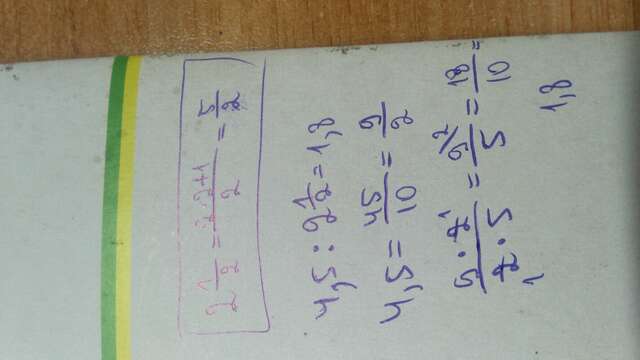 2 1/2 = 2·2+1/2 = 5/2
4,5 : 2 1/2 = 1,8
4,5 = 45/10 = 9/2
9·2/2·5 = 9/5 = 18/10 =
1,8